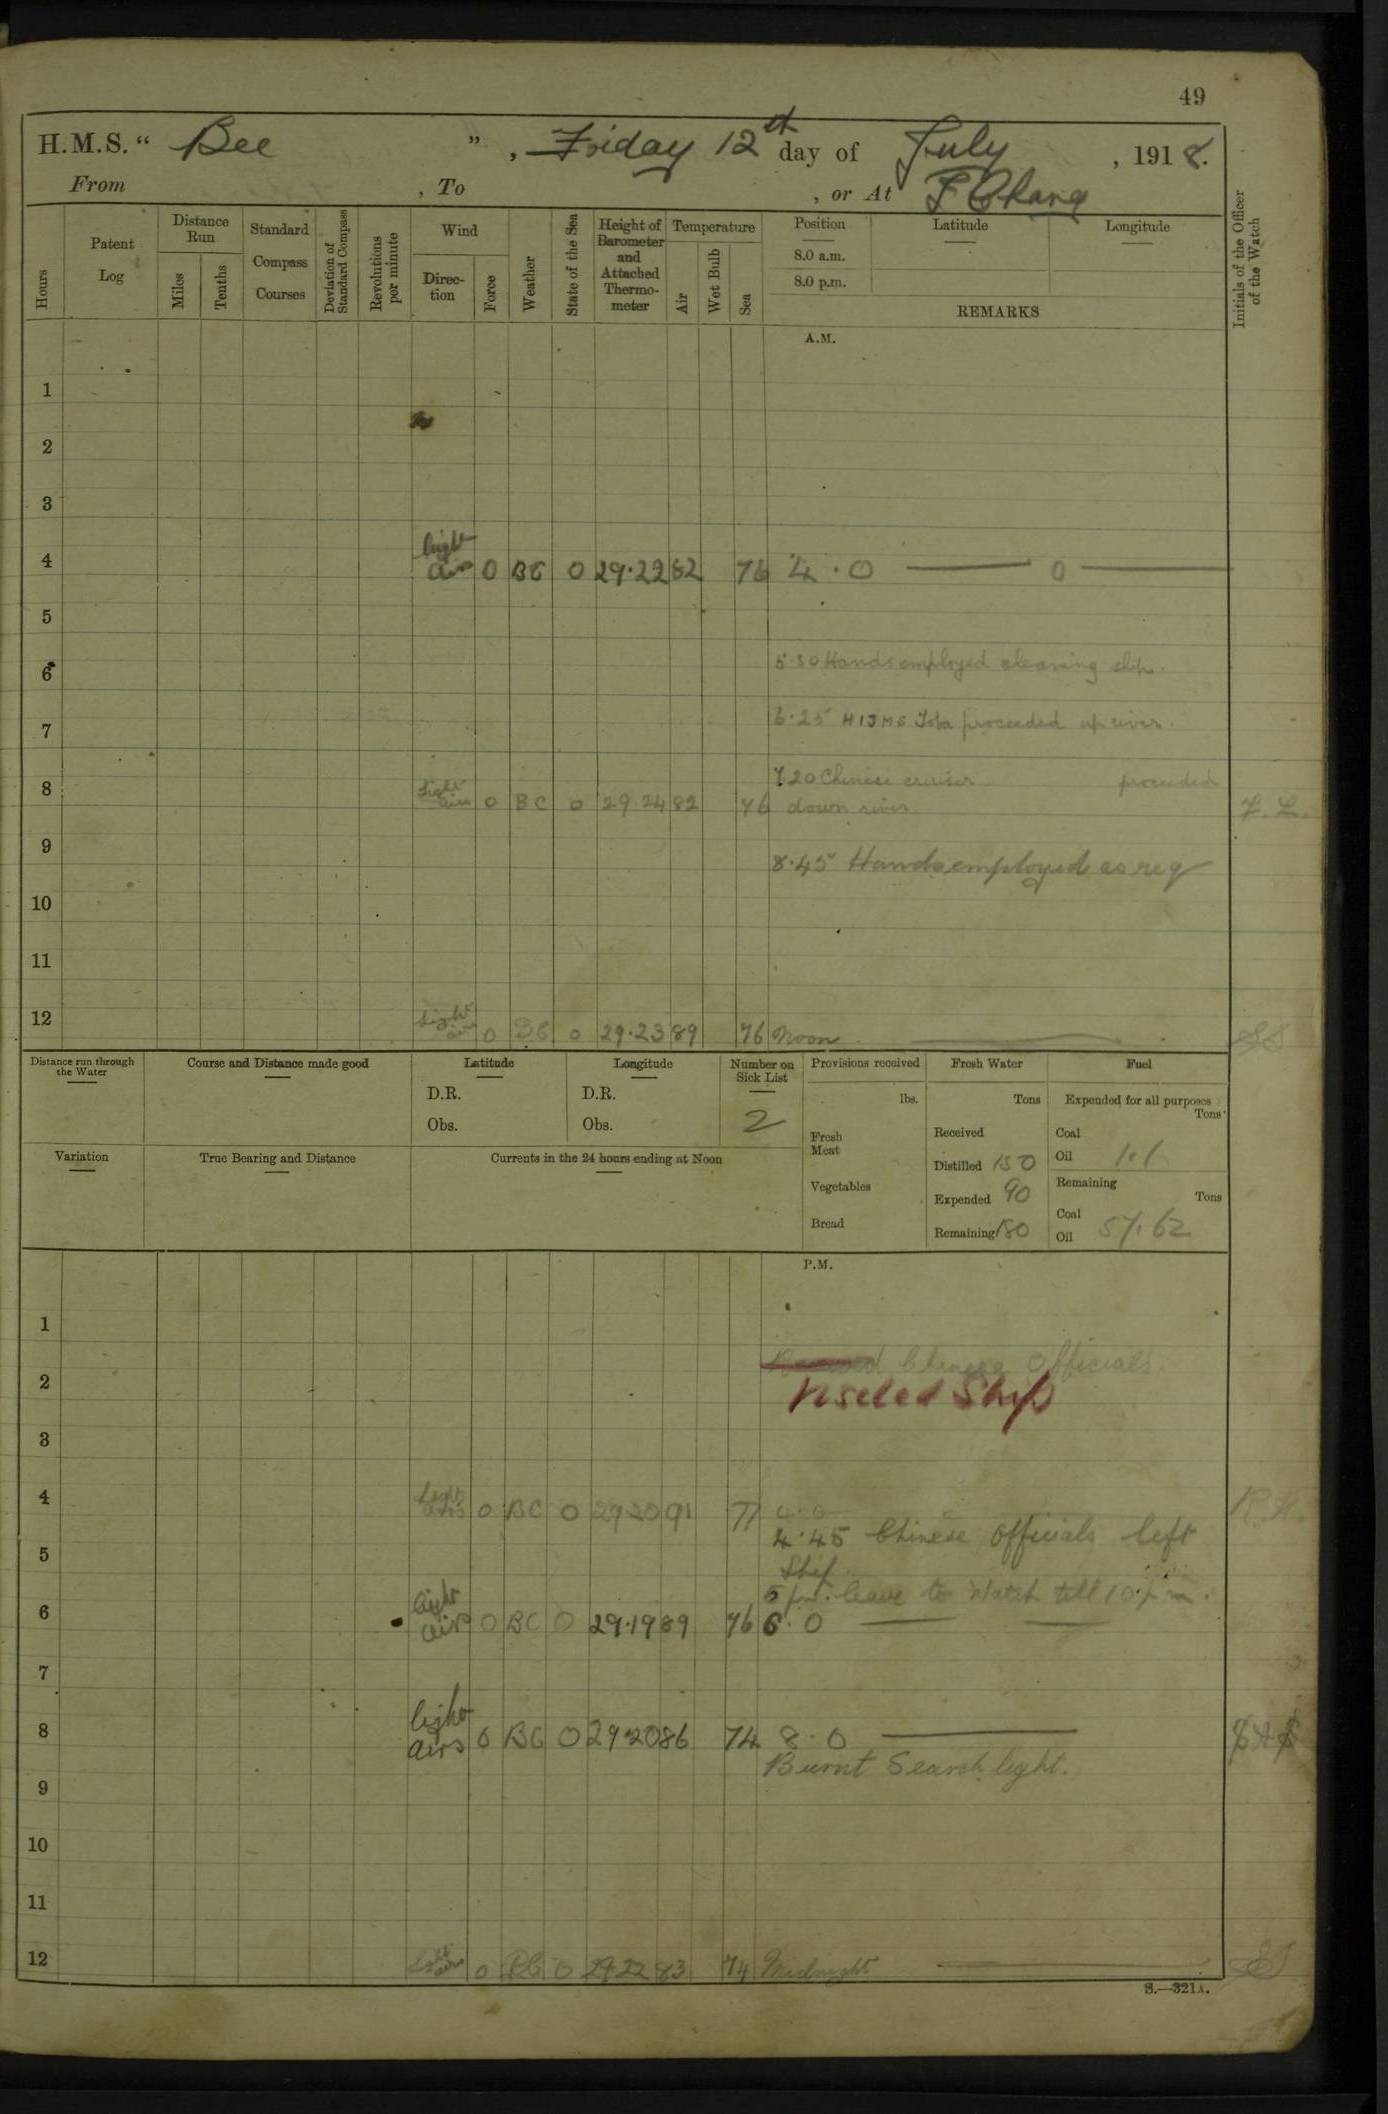 49
H.M.S. “ Bee ” , Friday 12th day of July , 1918.
From , To , or At I Chang
Hours
Patent Log
Distance Run
Miles
Tenths
Standard Compass Courses
Deviation of Standard Compass
Revolutions per minute
Wind
Direction
Force
Weather
State of the Sea
Height of Barometer and Attached Thermometer
Temperature
Air
Wet Bulb
Sea
Position
8.0 a.m.
8.0 p.m.
Latitude
Longitude
REMARKS
Initials of the Officer of the Watch
A.M.
1
2
3
4 light airs 0 BC 0 29.22 82 76 4.0 — 0 —
5
6 5.30 Hands employed cleaning ship.
7 6.25 HIJMS Toba proceeded up river.
8 Light airs 0 BC 0 29.24 82 76 7.20 Chinese cruiser proceeded
down river.
9 8.45 Hands employed as req
10
11
12 Light airs 0 BC 0 29.23 89 76 Noon
Distance run through the Water
Course and Distance made good
Latitude
D.R.
Obs.
Longitude
D.R.
Obs.
Number on Sick List
2
Provisions received
lbs.
Fresh Meat
Vegetables
Bread
Fresh Water
Tons
Received
Distilled 150
Expended 90
Remaining 180
Fuel
Expended for all purposes
Tons
Coal
Oil 1.1
Remaining
Tons
Coal
Oil 57.62
Variation
True Bearing and Distance
Currents in the 24 hours ending at Noon
P.M.
1
Chinese Officials
2 viseted Ship
3
4 Light airs 0 BC 0 29 20 91 77 4.0
4.45 Chinese Officials left
5 Ship
5 pm. leave to Watch till 10 p.m.
6 light airs 0 BC 0 29.19 89 76 6.0
7
8 light airs 0 BC 0 29 20 86 74 8.0
Burnt Search light.
9
10
11
12 Light airs 0 BC 0 29.22 83 74 Midnight
S.—321A.